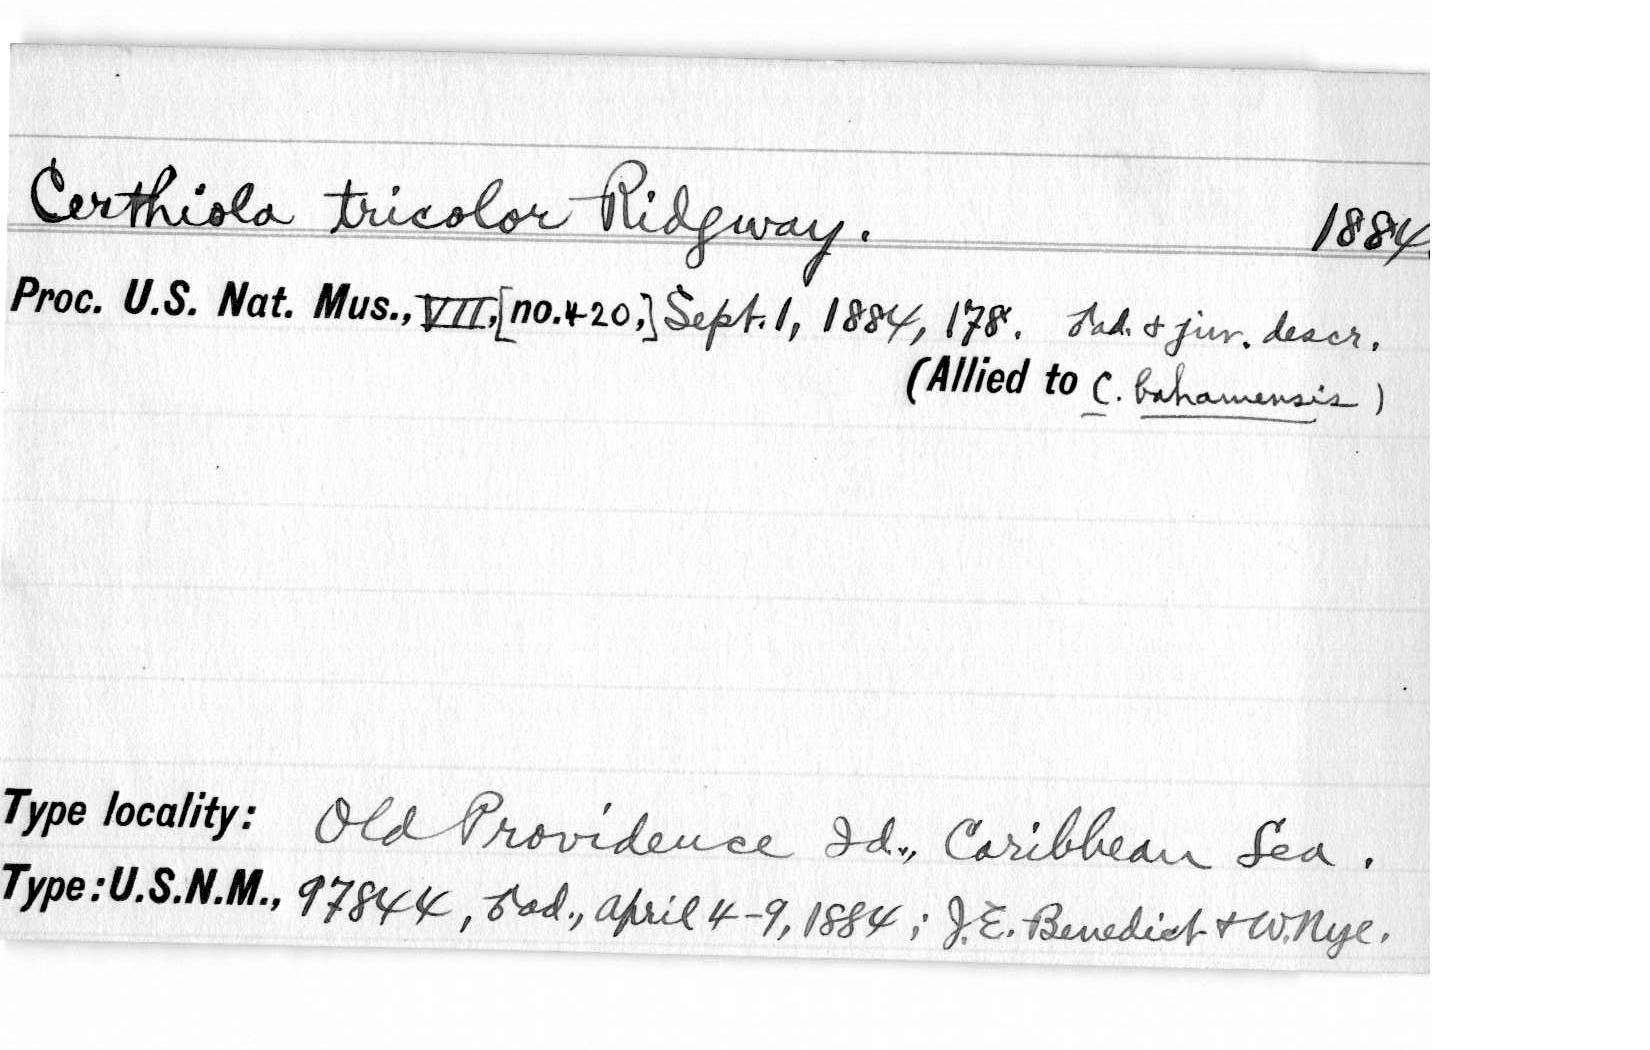 Certhiola tricolor Ridgway. 1884.
Proc. U.S. Nat. Mus., VII, [no. 420,] Sept. 1, 1884, 178. ♂ad. & juv. descr.
(Allied to C. bahamensis)
Type locality: Old Providence Id., Caribbean Sea.
Type: U.S.N.M., 97844, ♂ad., April 4-9, 1884; J.E. Benedict & W. Nye.